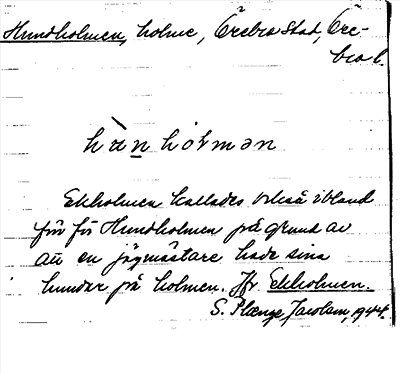 Hundholmen, holme, Örebro stad, Öre-
bro l.
hùnhòlmən
Ekholmen kallades också ibland
förr för Hundholmen på grund av
att en jägmästare hade sina
hundar på holmen. Jfr Ekholmen.
S. Plænge Jacobson, 1944.